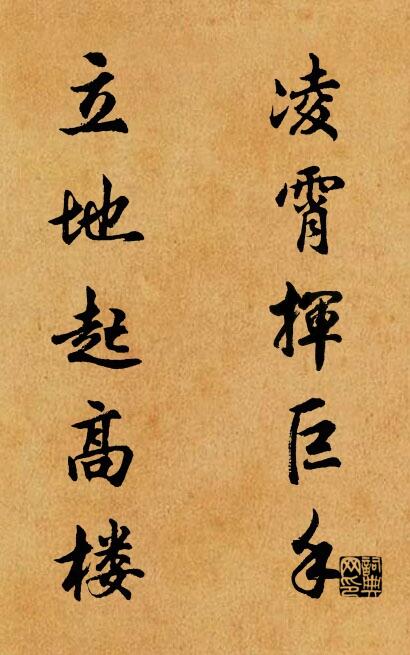 凌霄揮巨手
立地起高楼
詞典网印